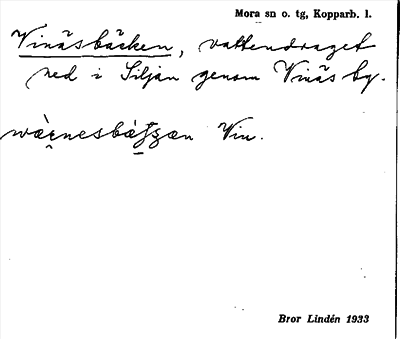 Mora sn o. tg, Kopparb. l.
Vinäsbäcken, vattendraget
ned i Siljan genom Vinäs by.
Vin.
Bror Lindén 1933